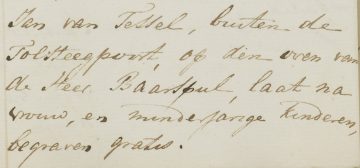 Jan van Tessel, buiten de
Tolsteegpoort, op den oven van
de Heer Baarspul, laat na
vrouw, en minderjarige kinderen,
begraven gratis.